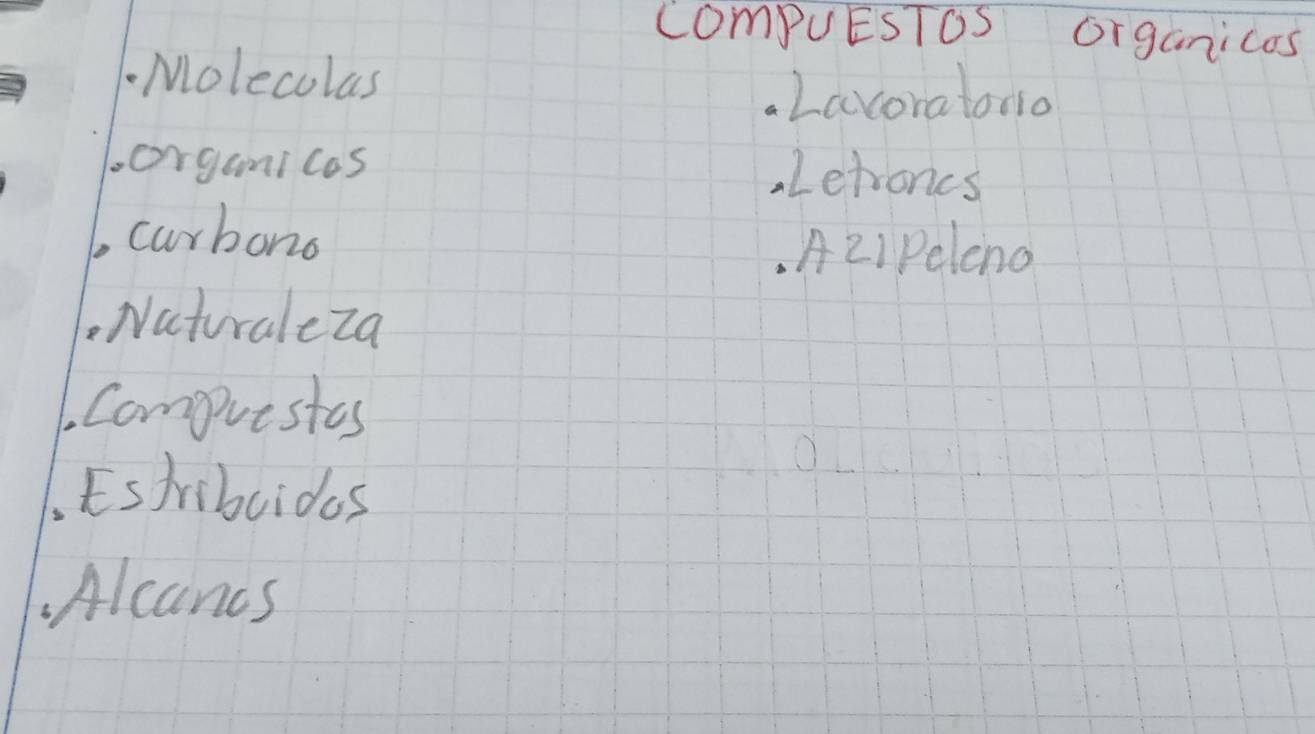 COMPUESTOS organicos
. Molecolas
. organicos
. carbono
. Naturaleza
. Compuestos
. Estribuidos
. Alcanos
. Lavoratorio
. Letrones
. AZIPeleno